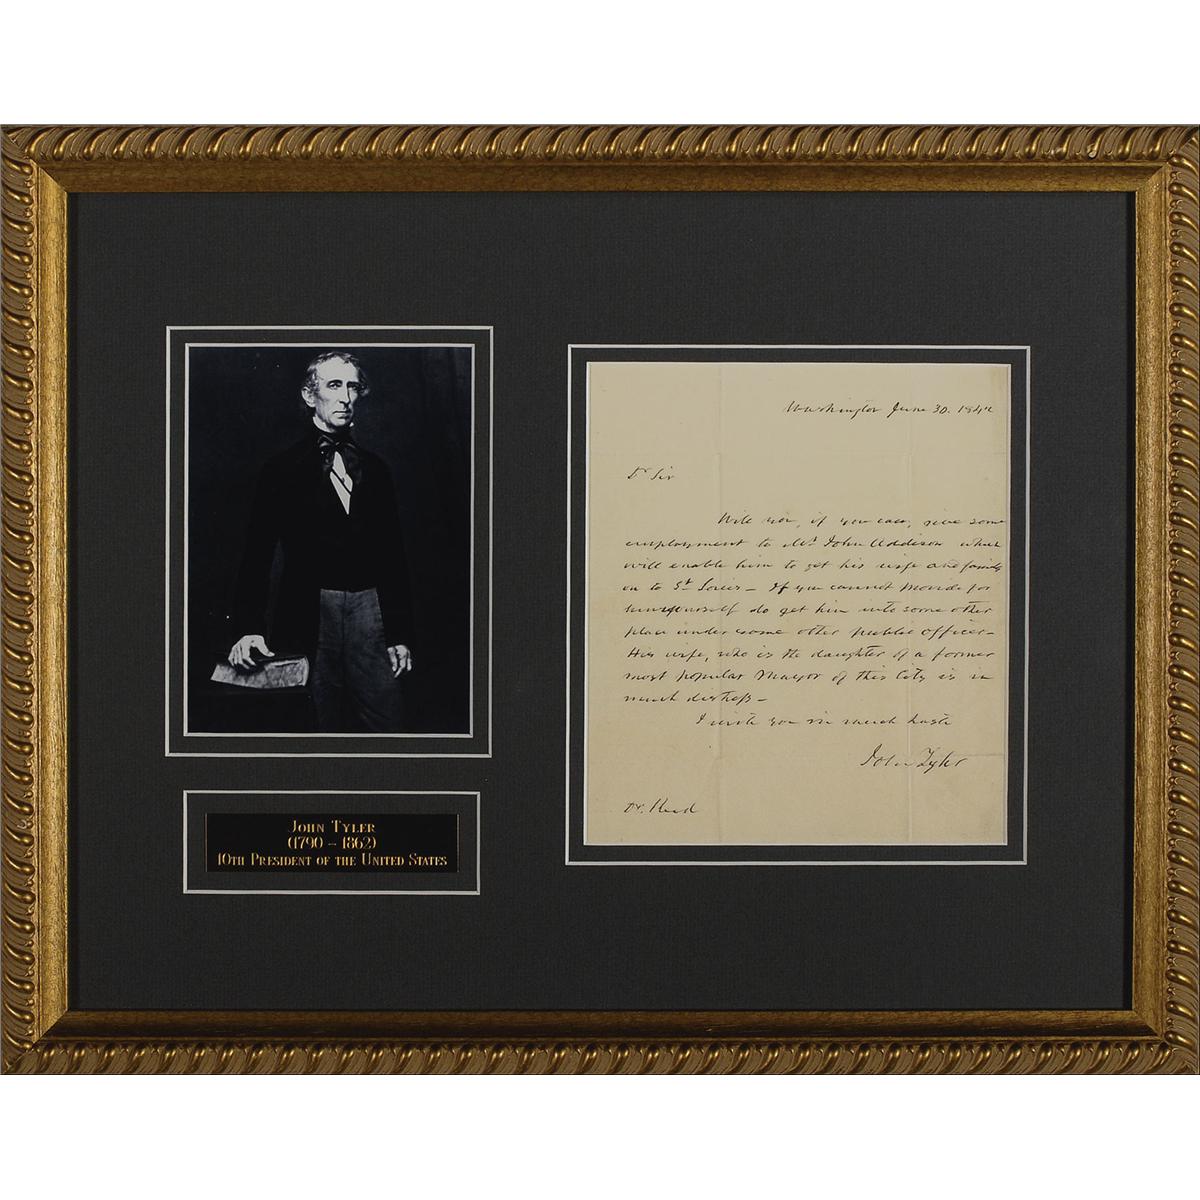 Washington June 30. 1842
Dr Sir
Will you, if you can, give some
employment to Mr John Addison which
will enable him to get his wife and family
on to St Louis – If you cannot provide for
him yourself do get him into some other
place under some other public officer –
His wife, who is the daughter of a former
most popular Mayor of this City is in
much distress –
I write you in much haste
John Tyler
Dr.
JOHN TYLER
(1790 – 1862)
10TH PRESIDENT OF THE UNITED STATES